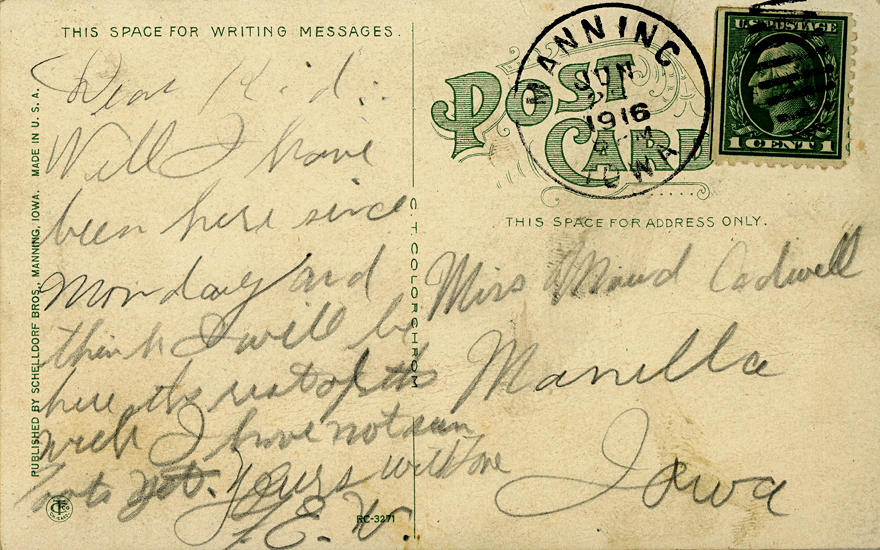 THIS SPACE FOR WRITING MESSAGES.
Dear Kid:
Well I have
been here since
Monday and
think I will be
here the rest of the
week I have not seen
yet. Yours with love
E. W.
PUBLISHED BY SCHELLDORF BROS., MANNING, IOWA. MADE IN U. S. A.
C. T. COLORCHROM
RC-3271
POST CARD
MANNING
JUN
1916
IOWA
U.S. POSTAGE
1 CENT 1
THIS SPACE FOR ADDRESS ONLY.
Miss Maud Cadwell
Manilla
Iowa